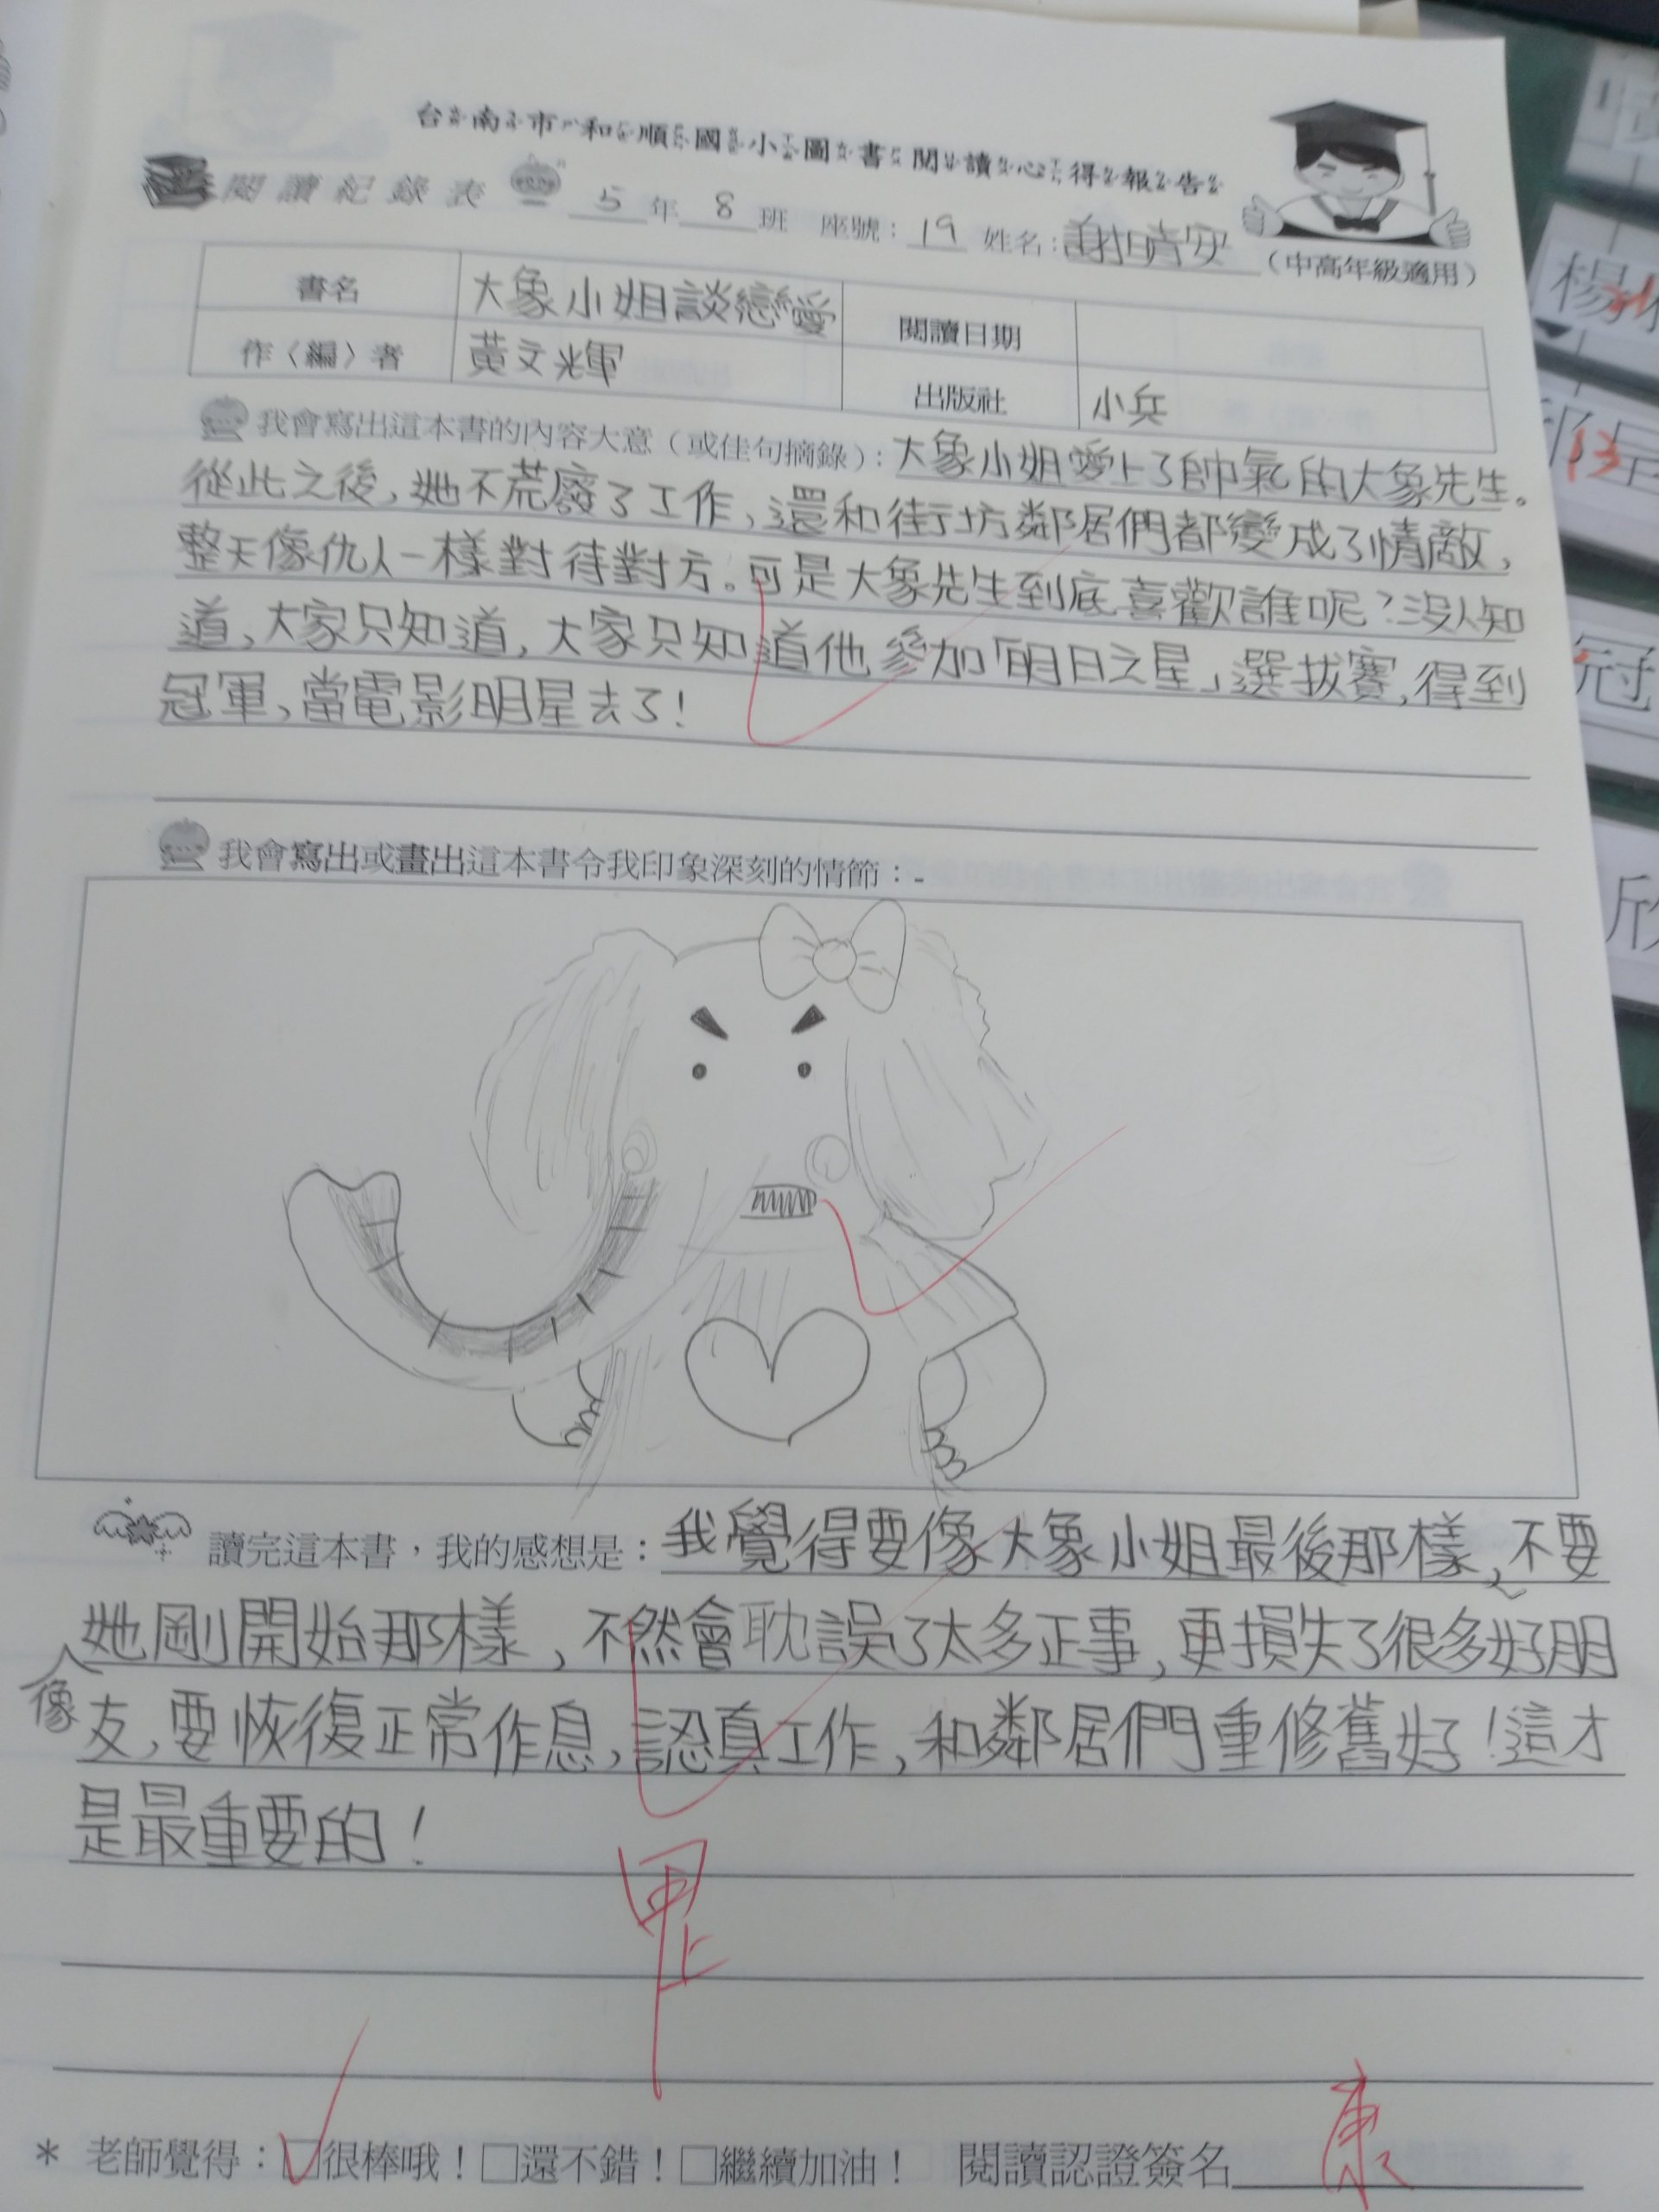 台南市和順國小圖書閱讀心得報告
閱讀紀錄表 5年8班 座號：19 姓名：謝晴安
（中高年級適用）
書名 大象小姐談戀愛 閱讀日期
作〈編〉者 黃文輝 出版社 小兵
我會寫出這本書的內容大意（或佳句摘錄）：大象小姐愛上了帥氣的大象先生。
從此之後，她不荒廢了工作，還和街坊鄰居們都變成了情敵，
整天像仇人一樣對待對方。可是大象先生到底喜歡誰呢？沒人知
道，大家只知道，大家只知道他參加「明日之星」選拔賽，得到
冠軍，當電影明星去了！
我會寫出或畫出這本書令我印象深刻的情節：
讀完這本書，我的感想是：我覺得要像大象小姐最後那樣，不要
像她剛開始那樣，不然會耽誤了太多正事，更損失了很多好朋
友，要恢復正常作息，認真工作，和鄰居們重修舊好！這才
是最重要的！
甲上
＊ 老師覺得：☑很棒哦！□還不錯！□繼續加油！ 閱讀認證簽名 康
楊
13
冠
欣